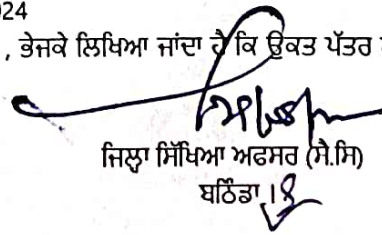 024
, ਭੇਜਕੇ ਲਿਖਿਆ ਜਾਂਦਾ ਹੈ ਕਿ ਉਕਤ ਪੱਤਰ
ਜਿਲ੍ਹਾ ਸਿੱਖਿਆ ਅਫਸਰ (ਸੈ.ਸਿ)
ਬਠਿੰਡਾ ।